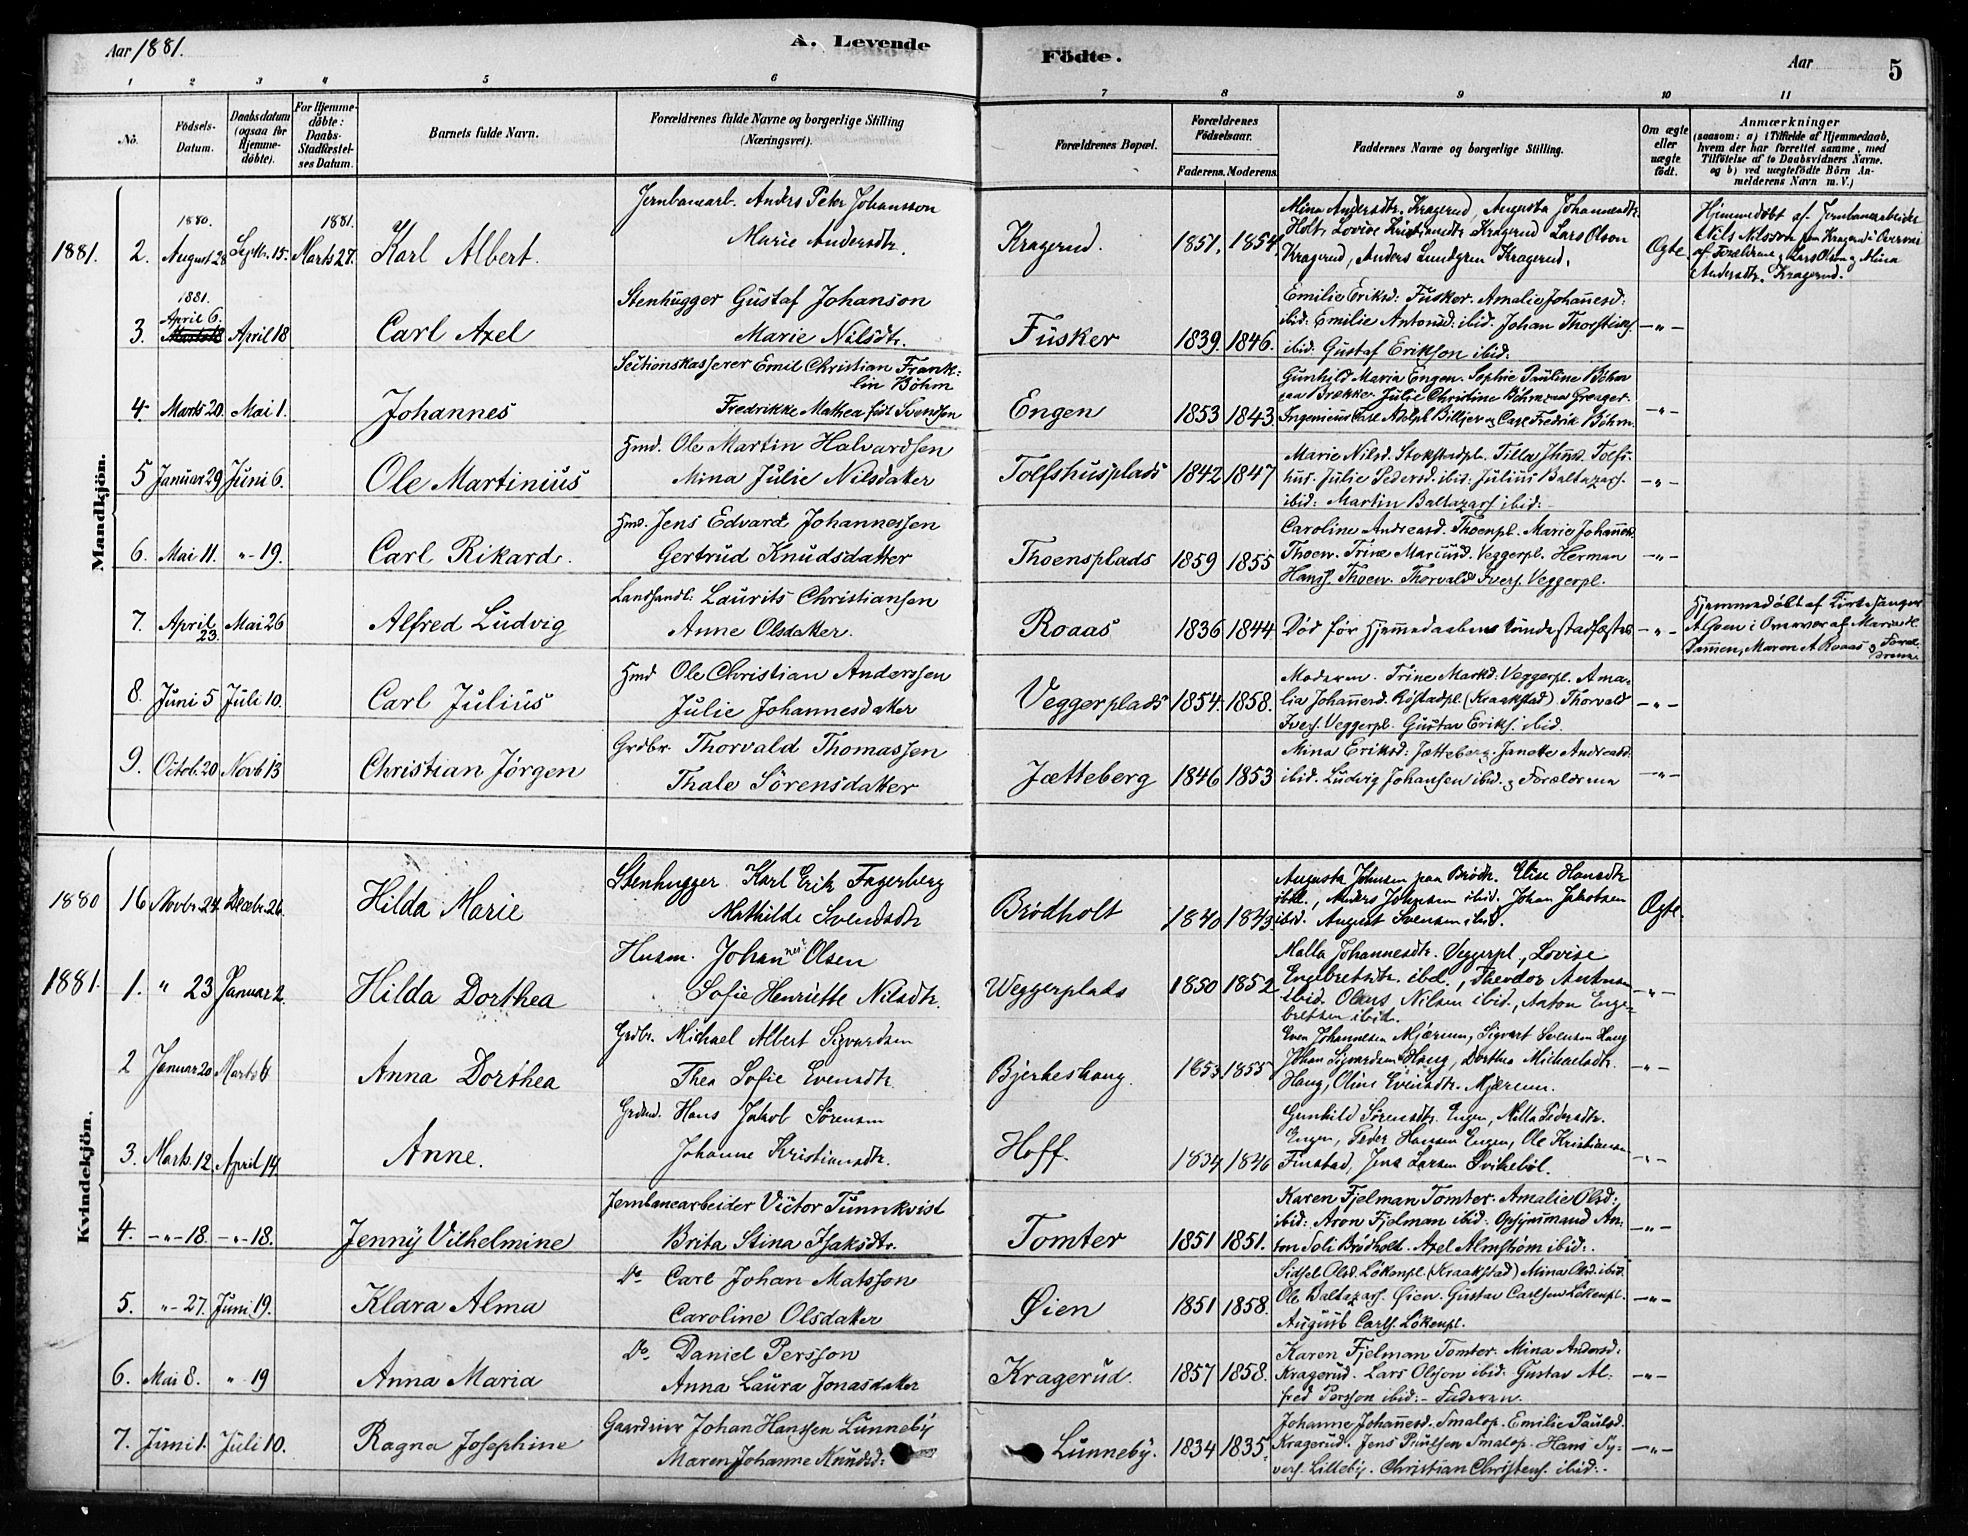 Aar 1881.
A. Levende
Födte.
Aar
5
1 2 3 4 5 6 7 8 9 10 11
No.
Födsels-Datum.
Daabsdatum (ogsaa för Hjemme-döbte).
For Hjemme-döbte: Daabs-Stadfæstel-ses Datum.
Barnets fulde Navn.
Forældrenes fulde Navne og borgerlige Stilling (Næringsvei).
Forældrenes Bopæl.
Forældrenes Födselsaar.
Faderens. Moderens.
Faddernes Navne og borgerlige Stilling.
Om ægte eller uægte födt.
Anmærkninger
(saasom: a) i Tilfælde af Hjemmedaab, hvem der har forrettet samme, med Tilföielse af to Daabsvidners Navne. og b) ved uægtefödte Börn An-melderens Navn m. V.)
Mandkjön.
1881.
2. 1880. August 28 Septbr. 15. 1881. Marts 27. Karl Albert.
Jernbanearb. Anders Peter Johansson
Marie Andersdtr.
Kragerud. 1851. 1854.
Mina Andersdtr. Kragerud, Augusta Johannesdtr.
Holt, Lovise Kristiansdtr. Kragerud Lars Olson
Kragerud, Anders Lundgren Kragerud.
Ægte.
Hjemmedøbt af Jernbanearbeider
Nils Nilsson paa Kragerud i Overvær
af Forældrene og Lars Olson og Mina
Andersdtr. Kragerud.
3. 1881. April 6. April 18 Carl Axel
Stenhugger Gustaf Johanson
Marie Nilsdtr.
Füsker 1839. 1846.
Emilie Eriksd: Füsker. Amalie Johannesd:
ibid: Emilie Antonsd: ibid. Johan Thorsteins.
ibid: Gustaf Erikson ibid.
-"-
4. Marts 20. Mai 1. Johannes
Sectionskasserer Emil Christian Frank-
lin Böhm
Fredrikke Mathea født Svendsen
Engen 1853 1843.
Gunhild Maria Engen. Sophie Pauline Böhm
paa Brække. Julie Christine Böhm paa Grøager
Ingenieur Carl Adolph Billjer og Carl Fredrik Böhm.
-"-
5 Januar 29 Juni 6. Ole Martinius
Hmd. Ole Martin Halvardsen
Mina Julie Nilsdatter
Tolfshusplads 1842 1847
Marie Nilsd. Stokstadpl. Tilla Jhnsd. Tolfs-
hus. Julie Pedersd. ibid. Julius Baltazars.
ibid: Martin Baltazars. ibid:
-"-
6. Mai 11. "-19. Carl Rikard.
Hmd. Jens Edvard Johannessen
Gertrud Knudsdatter
Thoensplads 1859 1855
Caroline Andreasd. Thoenpl. Marie Johannesd.
Thoen. Trine Mariusd. Veggerpl. Herman
Hans. Thoen. Thorvald Ivers. Veggerpl.
-"-
7. April 23. Mai 26 Alfred Ludvig
Landhandl: Laurits Christiansen
Anne Olsdatter.
Roaas 1836 1844.
Død før Hjemmedaaben kunde stadfæstes
-"-
Hjemmedøbt af Kirkesanger
A. Goen i Overvær af Maria K.
Maren A Roaas og Foræl-
drene
8. Juni 5 Juli 10. Carl Julius
Hmd Ole Christian Anderssen
Julie Johannesdatter
Veggerplads 1854. 1858.
Moderen. Trine Markd. Veggerpl. Ama-
lia Johannesd. Rostadpl. (Kraakstad) Thorvald
Ivers. Veggerpl. Gustav Eriks. ibid.
-"-
9. Octob. 20 Novb 13 Christian Jørgen
Grdbr. Thorvald Thomassen
Thale Sörensdatter
Jætteberg 1846 1853
Mina Eriksd: Jætteberg. Janette Andreasd.
ibid. Ludvig Johansen ibid. og Forældrene
-"-
Kvindekjön.
1880 16 Novbr. 24. Decbr. 26. Hilda Marie
Stenhugger Karl Erik Fagerberg
Mathilde Svendsdtr
Brödholt 1840 1843.
Augusta Johnsen paa Brödh. Elise Hansdtr
ibid., Anders Johnsen ibid. Johan Jakobsen
ibid. August Svensen ibid.
Ægte.
1881. 1. " 23 Januar 2. Hilda Dorthea
Husm. Johannes Olsen
Sofie Henriette Nilsdtr.
Weggerplads 1850 1852
Malla Johannesdtr. Veggerpl., Lovise
Engebretsdtr. ibid., Theodor Antonsen
ibid. Olaus Nilsen ibid., Anton Enge-
bretsen ibid.
-"-
2 Januar 20 Marts 6 Anna Dorthea
Grdbr. Michael Albert Sigvardsen
Thea Sofie Evensdtr.
Bjerkeshaug. 1853. 1855
Even Johannesen Mjærum, Sigvart Svensen Haug
Johan Sigvardsen Haug, Dorthea Michaelsdtr.
Haug, Oline Evensdtr. Mjærum.
-"-
3. Marts 12. April 14. Anne.
Grdmd. Hans Jakob Sörensen
Johanne Kristiansdtr.
Hoff 1834 1846
Gunhild Sørensdtr. Engen, Nilla Pedersdtr.
Engen, Peder Hansen Engen, Ole Kristiansen
Finstad, Jens Larsen Svikebøl.
-"-
4. -"-18. -"-18. Jenny Vilhelmine
Jernbanearbeider Victor Tunnkvist
Brita Stina Isaksdtr.
Tomter 1851 1851.
Karen Fjelman Tomter. Amalie Olsd:
ibid: Aron Fjelman ibid: Opsynsmand An-
ton Toli Brödholt. Axel Almstrøm ibid:.
-"-
5. "-27. Juni 19. Klara Alma
Do Carl Johan Matsson
Caroline Olsdatter
Øien 1851 1858.
Sidsel Olsd. Lökenpl. (Kraakstad) Mina Olsd. ibid.
Ole Baltazars. Øien. Gustav Carlsen Lökenpl.
August Carls. Lökenpl.
-"-
6. Mai 8. " 19 Anna Maria
Do. Daniel Persson
Anna Laura Jonasdatter
Kragerud. 1857 1858.
Karen Fjelman Tomter. Mina Andersd:
Kragerud. Lars Olsson ibid: Gustav Al-
fred Persson ibid: - Faderen.
-"-
7. Juni 1. Juli 10. Ragna Josephine
Gaardeier Johan Hanssen Lunneby
Maren Johanne Knudsd:
Lunneby. 1834 1835.
Johanne Johannesd. Smalop. Emilie Paulsd.
Kragerud. Jens Paulsen Smalop. Hans Sy-
vers. Lilleby. Christian Christens. ibid:.
-"-